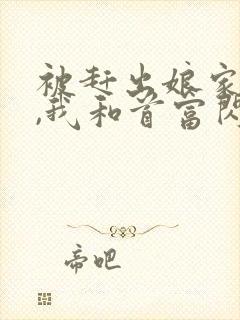 被赶出娘家
,我和首富闪
帝吧